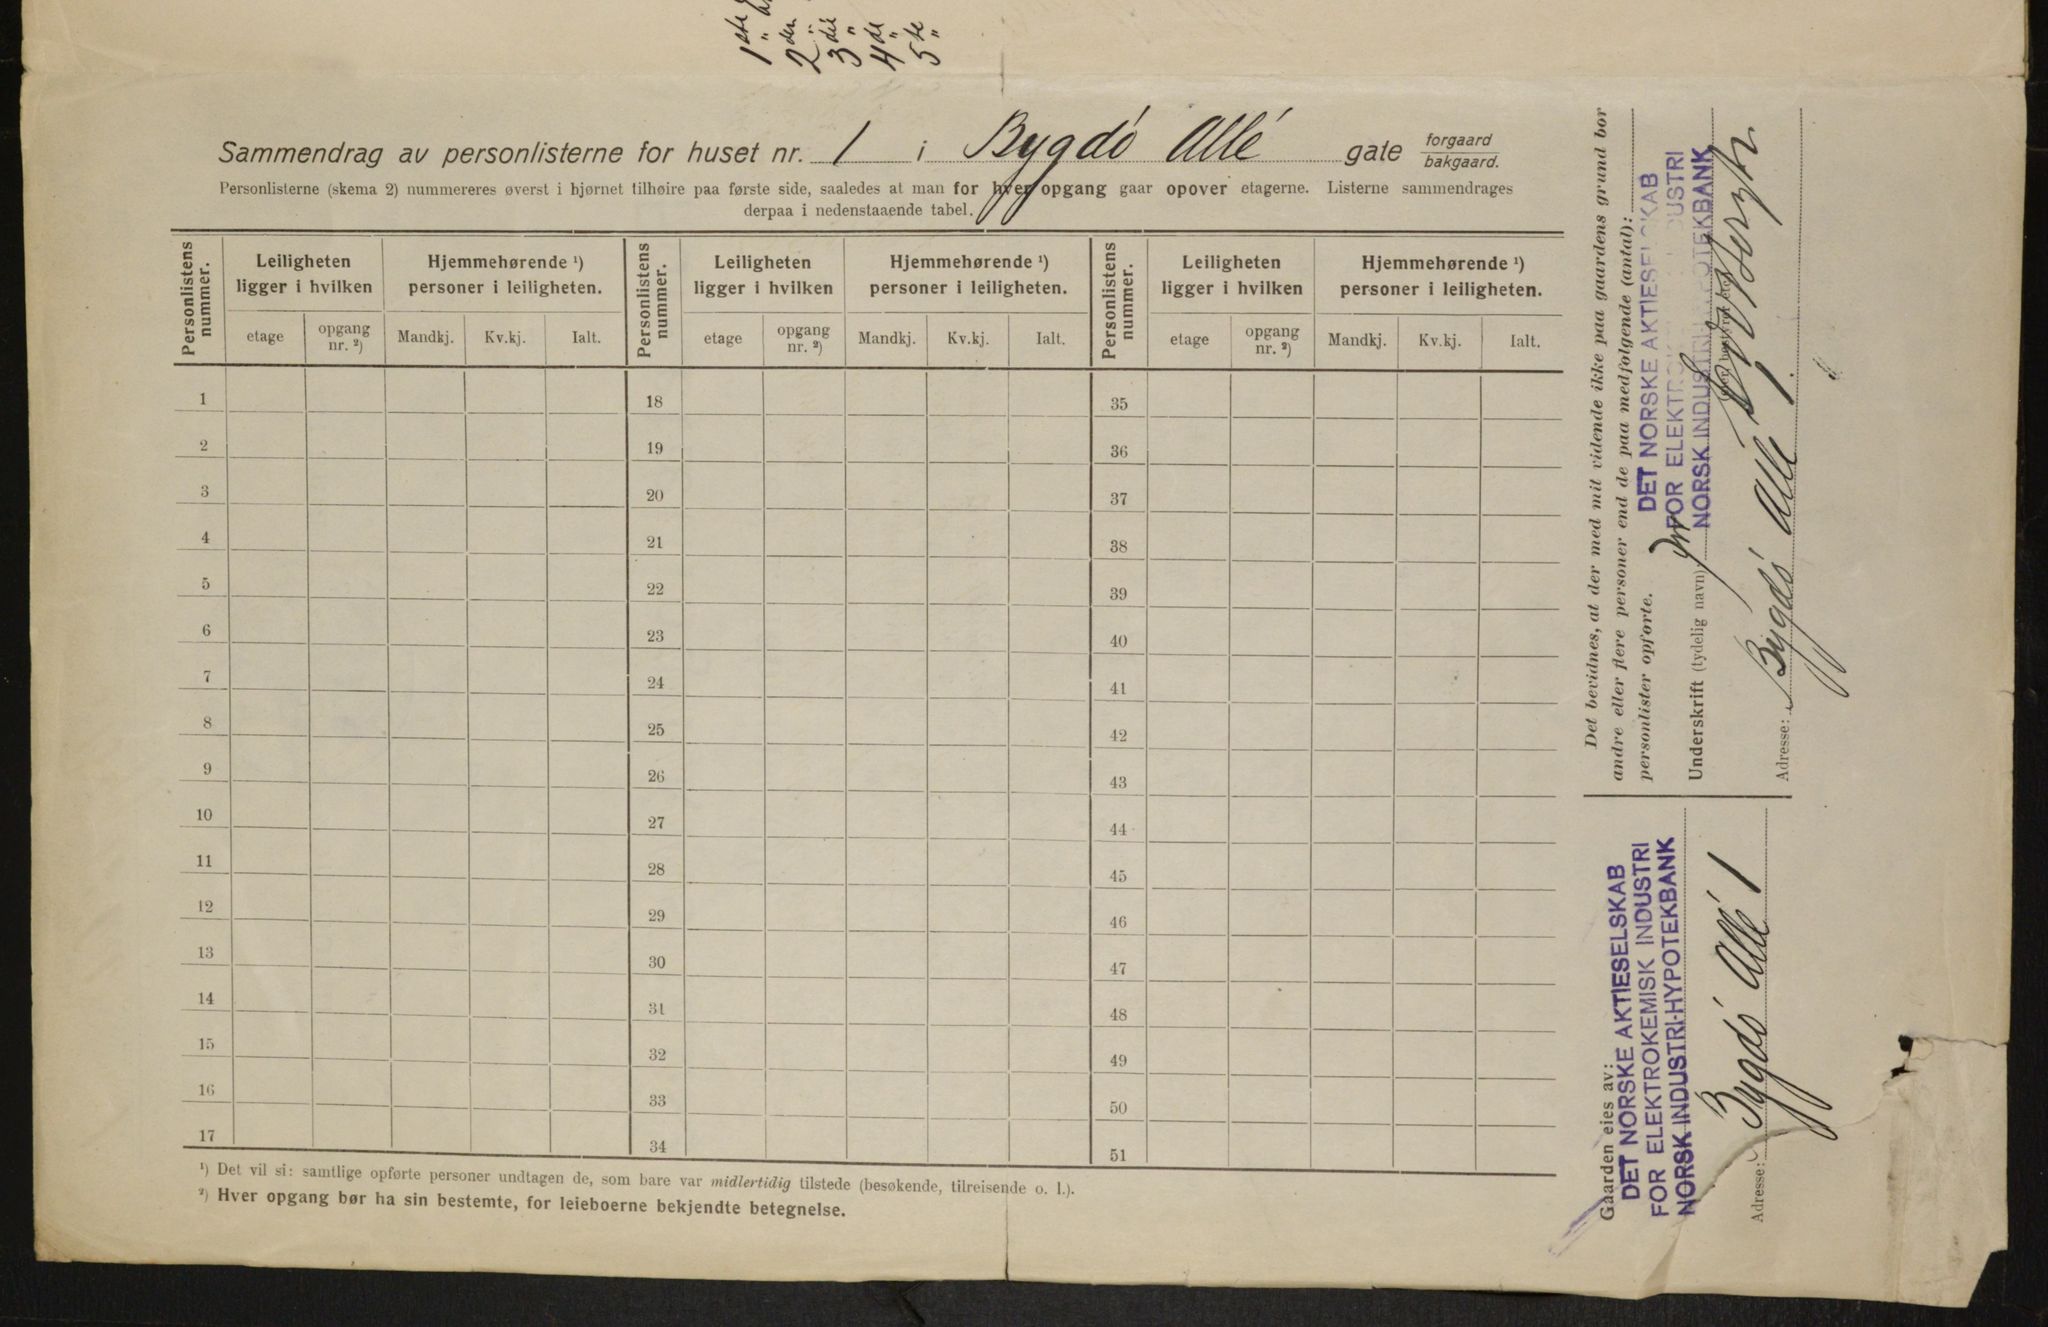 1ste "
2den "
3die "
4de "
5te "
Sammendrag av personlisterne for huset nr. 1 i Bygdö Allé gate forgaard bakgaard.
Personlisterne (skema 2) nummereres øverst i hjørnet tilhøire paa første side, saaledes at man for hver opgang gaar opover etagerne. Listerne sammendrages
derpaa i nedenstaaende tabel.
Personlistens nummer. Leiligheten ligger i hvilken Hjemmehørende ¹) personer i leiligheten. Personlistens nummer. Leiligheten ligger i hvilken Hjemmehørende ¹) personer i leiligheten. Personlistens nummer. Leiligheten ligger i hvilken Hjemmehørende ¹) personer i leiligheten.
etage opgang nr. ²) Mandkj. Kv.kj. Ialt. etage opgang nr. ²) Mandkj. Kv.kj. Ialt. etage opgang nr. ²) Mandkj. Kv.kj. Ialt.
1 18 35
2 19 36
3 20 37
4 21 38
5 22 39
6 23 40
7 24 41
8 25 42
9 26 43
10 27 44
11 28 45
12 29 46
13 30 47
14 31 48
15 32 49
16 33 50
17 34 51
¹) Det vil si: samtlige opførte personer undtagen de, som bare var midlertidig tilstede (besøkende, tilreisende o. l.).
²) Hver opgang bør ha sin bestemte, for leieboerne bekjendte betegnelse.
Det bevidnes, at der med mit vidende ikke paa gaardens grund bor
andre eller flere personer end de paa medfølgende (antal):
personlister opførte.
DET NORSKE AKTIESELSKAB
FOR ELEKTROKEMISK INDUSTRI
NORSK INDUSTRI-HYPOTEKBANK
Underskrift (tydelig navn):
Adresse: Bygdö Allé 1.
Gaarden eies av:
DET NORSKE AKTIESELSKAB
FOR ELEKTROKEMISK INDUSTRI
NORSK INDUSTRI-HYPOTEKBANK
Adresse: Bygdö Allé 1